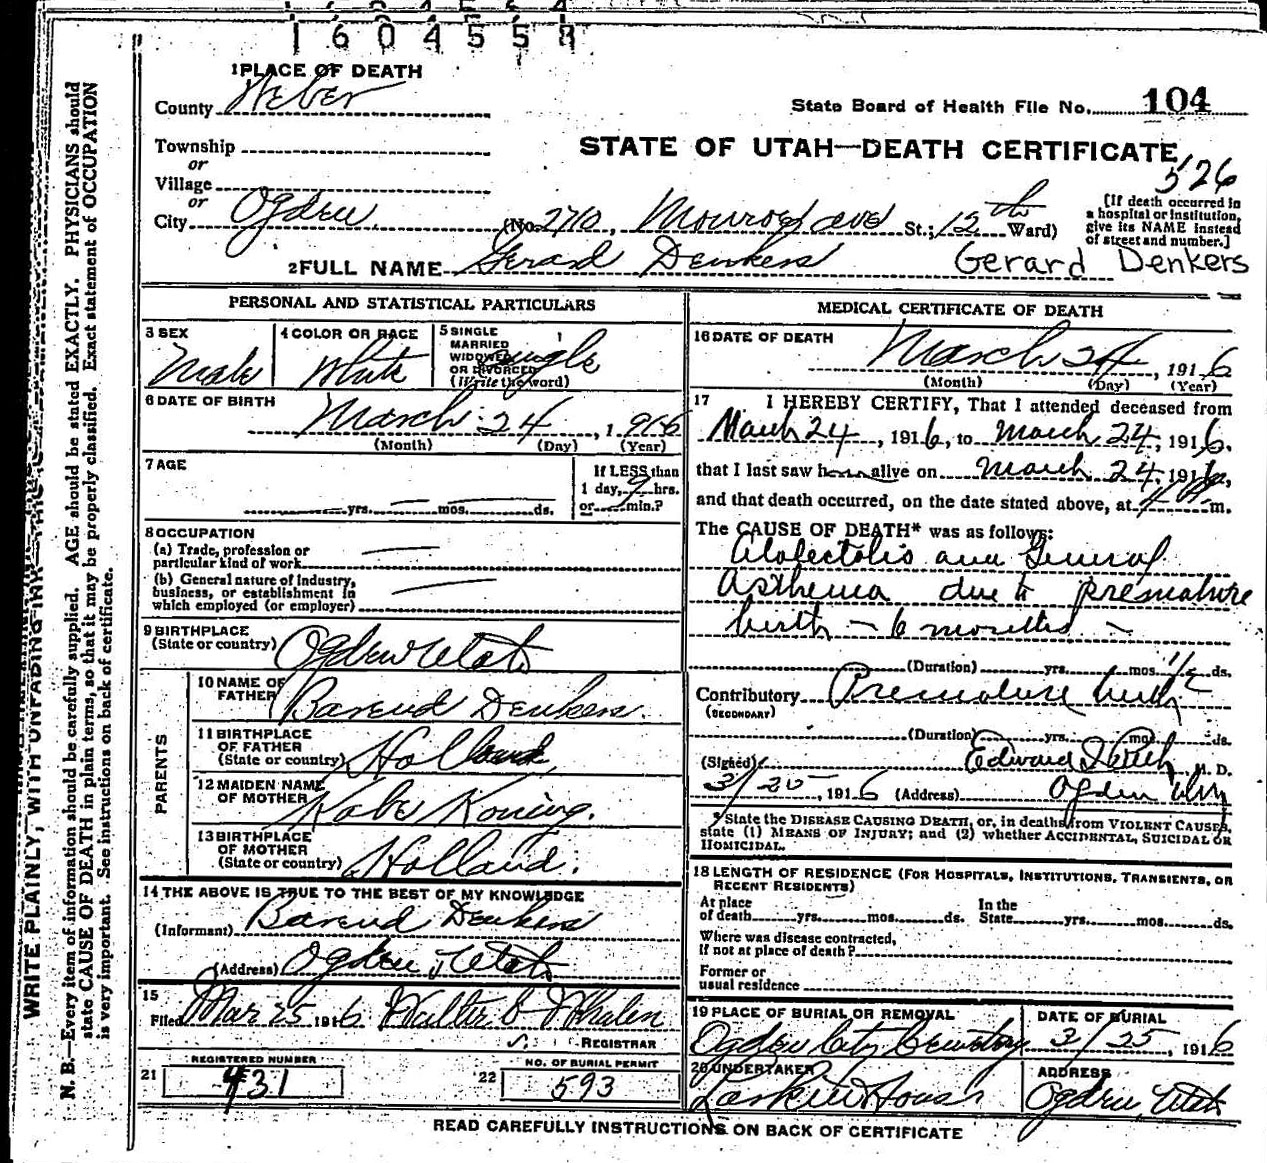 1604558
1 PLACE OF DEATH
County Weber
State Board of Health File No. 104
Township
or
Village
or
City Ogden
STATE OF UTAH—DEATH CERTIFICATE
526
[If death occurred in
a hospital or institution,
give its NAME instead
of street and number.]
(No. 2710, Monroe ave St.; 12th Ward)
2 FULL NAME Gerard Denkers Gerard Denkers
PERSONAL AND STATISTICAL PARTICULARS
3 SEX
Male
4 COLOR OR RACE
White
5 SINGLE
MARRIED
WIDOWED
OR DIVORCED
(Write the word)
Single
6 DATE OF BIRTH
March 24, 1916
(Month) (Day) (Year)
7 AGE
yrs. mos. ds.
If LESS than
1 day, 9 hrs.
or min.?
8 OCCUPATION
(a) Trade, profession or
particular kind of work
(b) General nature of industry,
business, or establishment in
which employed (or employer)
9 BIRTHPLACE
(State or country) Ogden Utah
PARENTS
10 NAME OF
FATHER Barend Denkers
11 BIRTHPLACE
OF FATHER
(State or country) Holland
12 MAIDEN NAME
OF MOTHER Kobe Koning.
13 BIRTHPLACE
OF MOTHER
(State or country) Holland.
14 THE ABOVE IS TRUE TO THE BEST OF MY KNOWLEDGE
(Informant) Barend Denkers
(Address) Ogden, Utah
15
Filed Mar 25 1916 Walter Whalen
REGISTRAR
REGISTERED NUMBER
21 431
NO. OF BURIAL PERMIT
22 593
MEDICAL CERTIFICATE OF DEATH
16 DATE OF DEATH
March 24, 1916
(Month) (Day) (Year)
17 I HEREBY CERTIFY, That I attended deceased from
March 24, 1916, to March 24, 1916,
that I last saw him alive on March 24, 1916,
and that death occurred, on the date stated above, at m.
The CAUSE OF DEATH* was as follows:
Atelectolis and General
Asthema due to premature
birth - 6 months -
(Duration) yrs. mos. 1/2 ds.
Contributory Premature birth
(SECONDARY)
(Duration) yrs. mos. ds.
(Signed) Edward I Rich M. D.
3/25, 1916 (Address) Ogden Utah
* State the DISEASE CAUSING DEATH, or, in deaths from VIOLENT CAUSES,
state (1) MEANS OF INJURY; and (2) whether ACCIDENTAL, SUICIDAL OR
HOMICIDAL.
18 LENGTH OF RESIDENCE (FOR HOSPITALS, INSTITUTIONS, TRANSIENTS, OR
RECENT RESIDENTS)
At place
of death yrs. mos. ds.
In the
State yrs. mos. ds.
Where was disease contracted,
if not at place of death?
Former or
usual residence
19 PLACE OF BURIAL OR REMOVAL
Ogden City Cemetery
DATE OF BURIAL
3/25, 1916
20 UNDERTAKER
Larkin & Sons
ADDRESS
Ogden, Utah
READ CAREFULLY INSTRUCTIONS ON BACK OF CERTIFICATE
WRITE PLAINLY, WITH UNFADING INK
N. B.—Every item of information should be carefully supplied. AGE should be stated EXACTLY. PHYSICIANS should
state CAUSE OF DEATH in plain terms, so that it may be properly classified. Exact statement of OCCUPATION
is very important. See instructions on back of certificate.